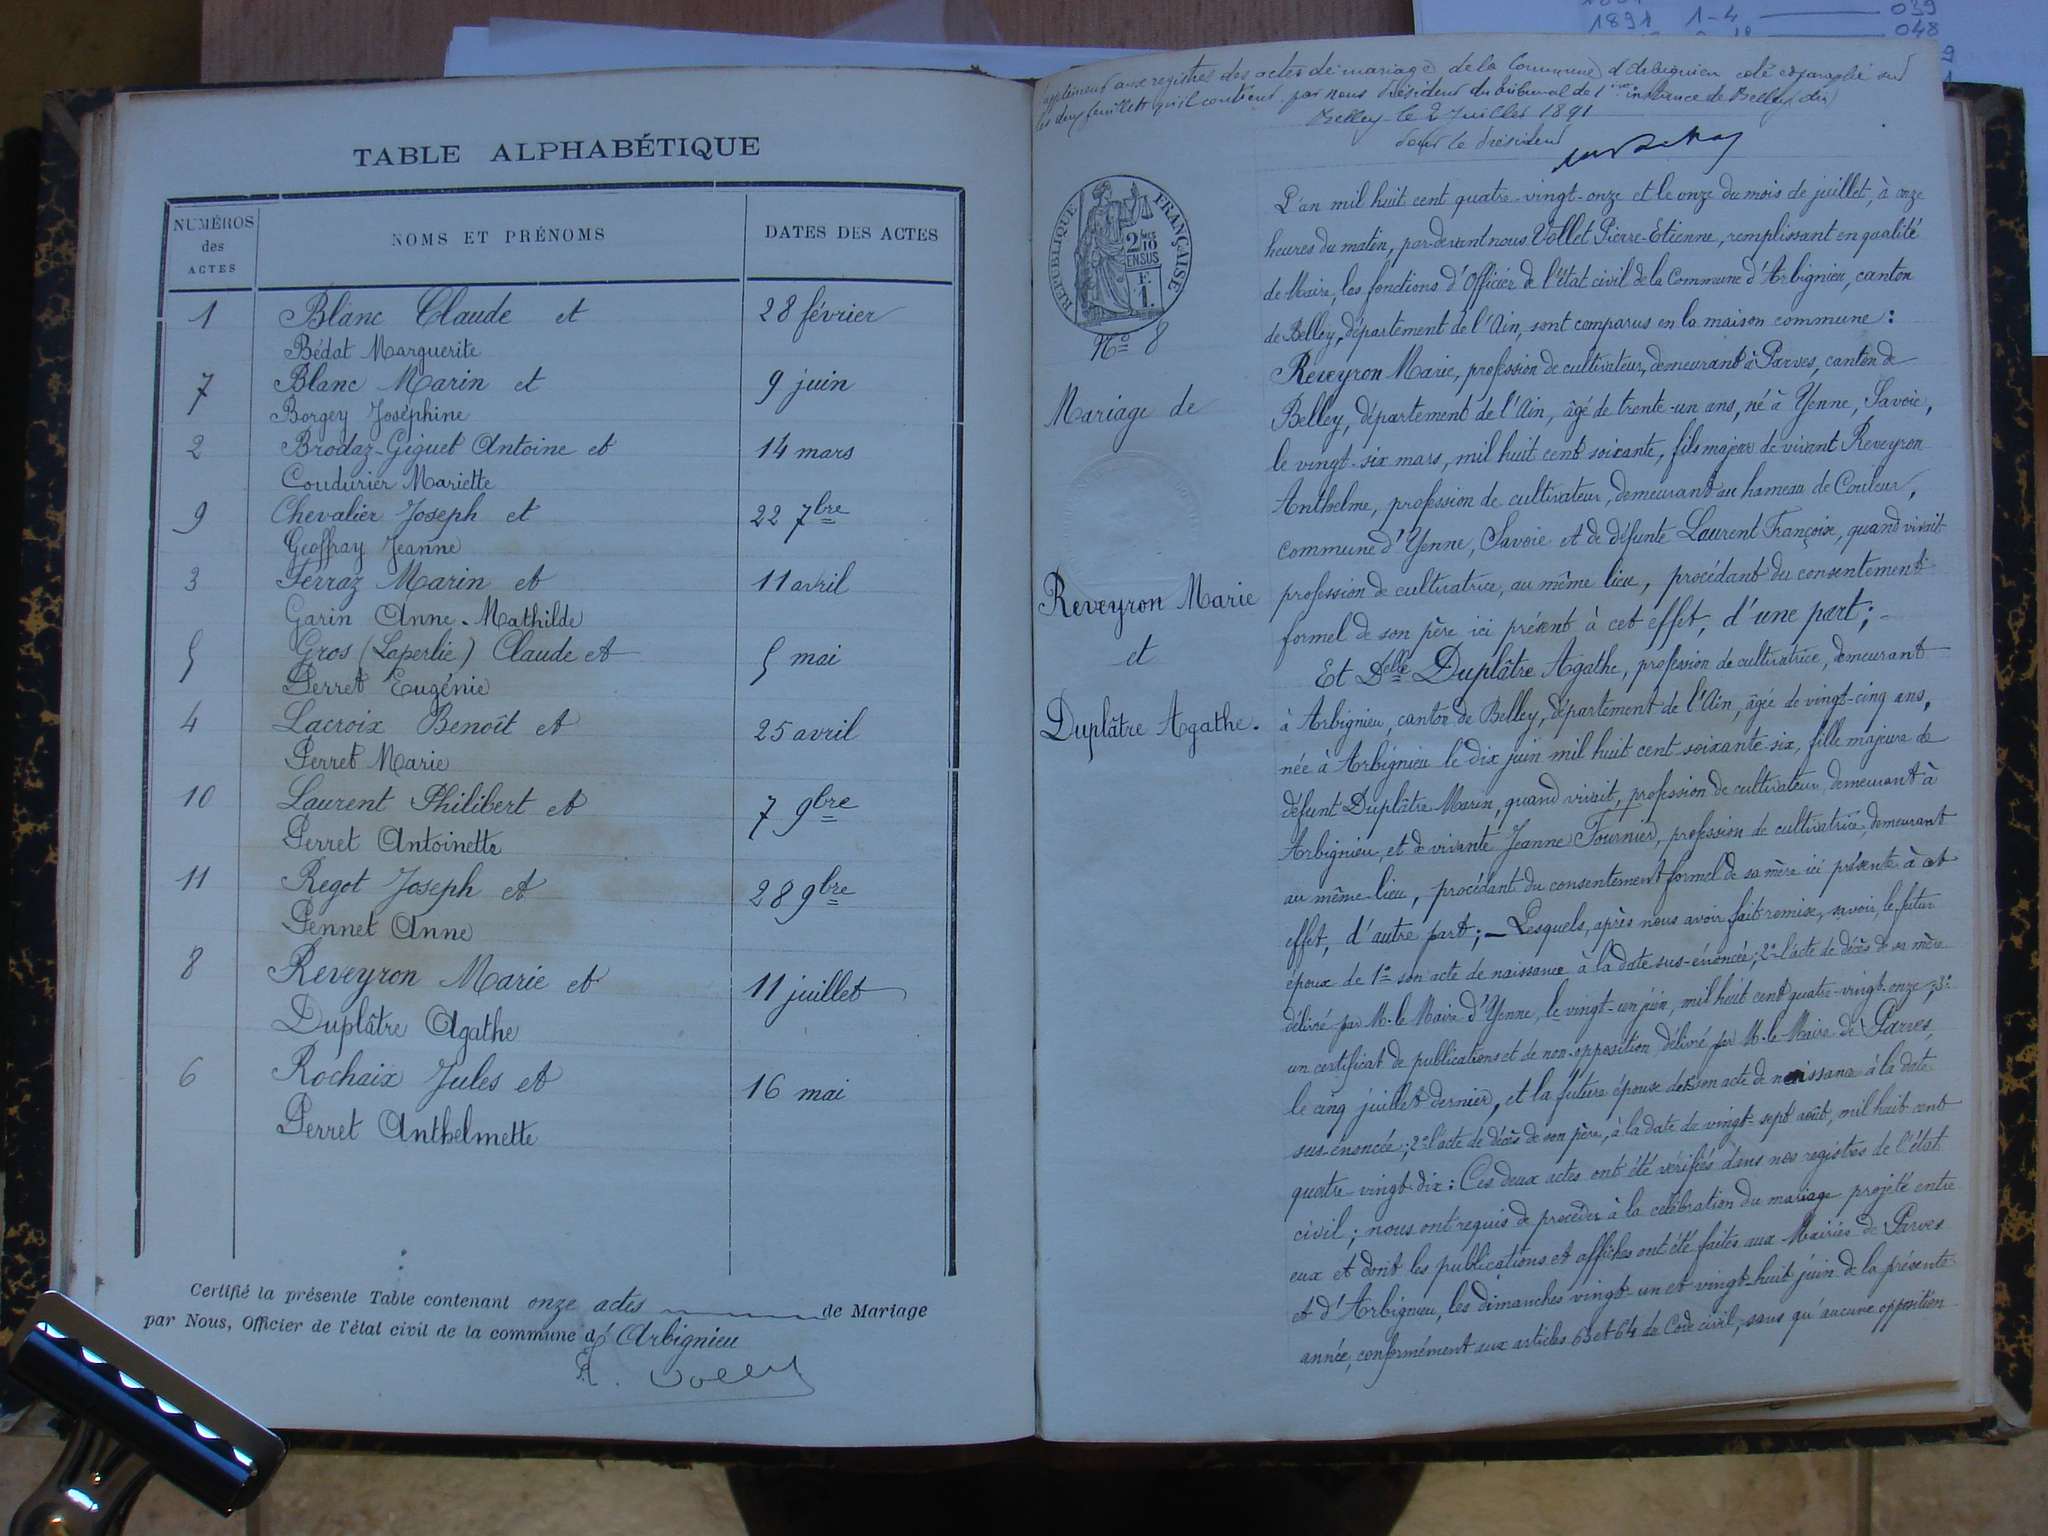 1891 1-4 039
048
TABLE ALPHABÉTIQUE
NUMÉROS des ACTES
NOMS ET PRÉNOMS
DATES DES ACTES
1 Blanc Claude et 28 février
Bédat Marguerite
7 Blanc Marin et 9 juin
Borgey Joséphine
2 Brodaz-Giguet Antoine et 14 mars
Coudurier Mariette
9 Chevalier Joseph et 22 7bre
Geoffray Jeanne
3 Ferraz Marin et 11 avril
Garin Anne-Mathilde
5 Gros (Laperlie) Claude et 5 mai
Perret Eugénie
4 Lacroix Benoît et 25 avril
Perret Marie
10 Laurent Philibert et 7 9bre
Perret Antoinette
11 Regot Joseph et 28 9bre
Pennet Anne
8 Reveyron Marie et 11 juillet
Duplâtre Agathe
6 Rochaix Jules et 16 mai
Perret Anthelmette
Certifié la présente Table contenant onze actes de Mariage
par Nous, Officier de l'état civil de la commune d' Arbignieu
aux registres des actes de mariage de la Commune d'Arbignieu coté et paraphé sur
les deux feuillets qu'il contient par nous Président du tribunal de 1re instance de Belley (Ain)
Belley le 2 Juillet 1891
pour le Président
RÉPUBLIQUE FRANÇAISE
2/10 EN SUS
F. 1.
No 8
Mariage de
Reveyron Marie
et
Duplâtre Agathe.
L'an mil huit cent quatre-vingt-onze et le onze du mois de juillet, à onze
heures du matin, par-devant nous Vollet Pierre-Etienne, remplissant en qualité
de Maire, les fonctions d'Officier de l'état civil de la Commune d'Arbignieu, canton
de Belley, département de l'Ain, sont comparus en la maison commune :
Reveyron Marie, profession de cultivateur, demeurant à Parves, canton de
Belley, département de l'Ain, âgé de trente-un ans, né à Yenne, Savoie,
le vingt-six mars, mil huit cent soixante, fils majeur de vivant Reveyron
Anthelme, profession de cultivateur, demeurant au hameau de
commune d'Yenne, Savoie et de défunte Laurent Françoise, quand vivait
profession de cultivatrice, au même lieu, procédant du consentement
formel de son père ici présent à cet effet, d'une part ; -
Et Delle Duplâtre Agathe, profession de cultivatrice, demeurant
à Arbignieu, canton de Belley, département de l'Ain, âgée de vingt-cinq ans,
née à Arbignieu le dix juin mil huit cent soixante-six, fille majeure de
défunt Duplâtre Marin, quand vivait, profession de cultivateur, demeurant à
Arbignieu, et de vivante Jeanne Fournier, profession de cultivatrice, demeurant
au même lieu, procédant du consentement formel de sa mère ici présente à cet
effet, d'autre part ; - Lesquels, après nous avoir fait remise, savoir, le futur
époux de 1° son acte de naissance à la date sus-énoncée ; 2° l'acte de décès de sa mère
délivré par M. le Maire d'Yenne, le vingt-un juin, mil huit cent quatre-vingt-onze ; 3°
un certificat de publications et de non-opposition délivré par M. le Maire de Parves,
le cinq juillet dernier, et la future épouse de 1° son acte de naissance à la date
sus-énoncée ; 2° l'acte de décès de son père, à la date du vingt-sept août, mil huit cent
quatre-vingt-dix : Ces deux actes ont été vérifiés dans nos registres de l'état
civil ; nous ont requis de procéder à la célébration du mariage projeté entre
eux et dont les publications et affiches ont été faites aux Mairies de Parves
et d'Arbignieu, les dimanches vingt-un et vingt-huit juin de la présente
année, conformément aux articles 63 et 64 du Code civil, sans qu'aucune opposition